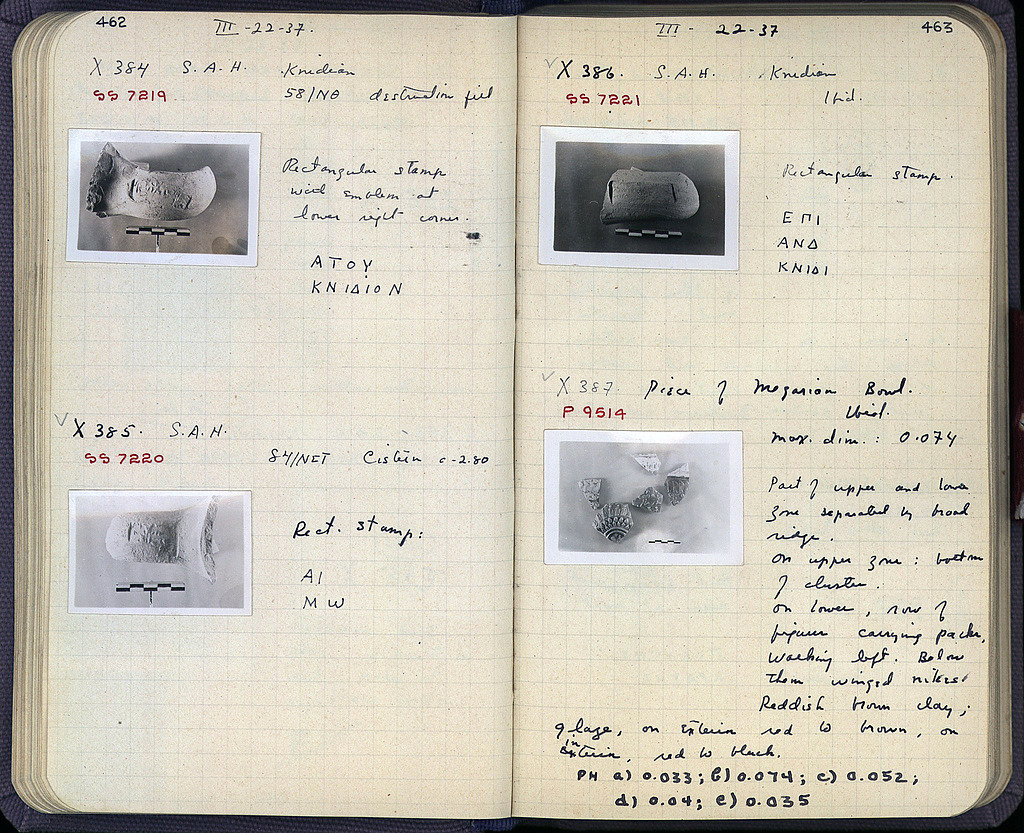 462
III -22-37.
X 384 S.A.H. Knidian
SS 7219 58/NΘ destruction fill
Rectangular stamp
with emblem at
lower right corner.
ΑΤΟΥ
ΚΝΙΔΙΟΝ
X 385. S.A.H.
SS 7220 84/ΝΣΤ Cistern c -2.80
Rect. stamp:
ΑΙ
Μω
III - 22-37 463
X 386. S.A.H. Knidian
SS 7221 Ibid.
Rectangular stamp.
ΕΠΙ
ΑΝΔ
ΚΝΙΔΙ
X 387. Piece of Megarian Bowl.
P 9514 Ibid.
max. dim.: 0.074
Part of upper and lower
zone separated by broad
ridge.
On upper zone: bottom
of cluster.
On lower, row of
figures carrying packs,
walking left. Below
them winged nikes.
Reddish brown clay;
glaze, on exterior red to brown, on
interior, red to black.
PH a) 0.033; b) 0.074; c) 0.052;
d) 0.04; e) 0.035